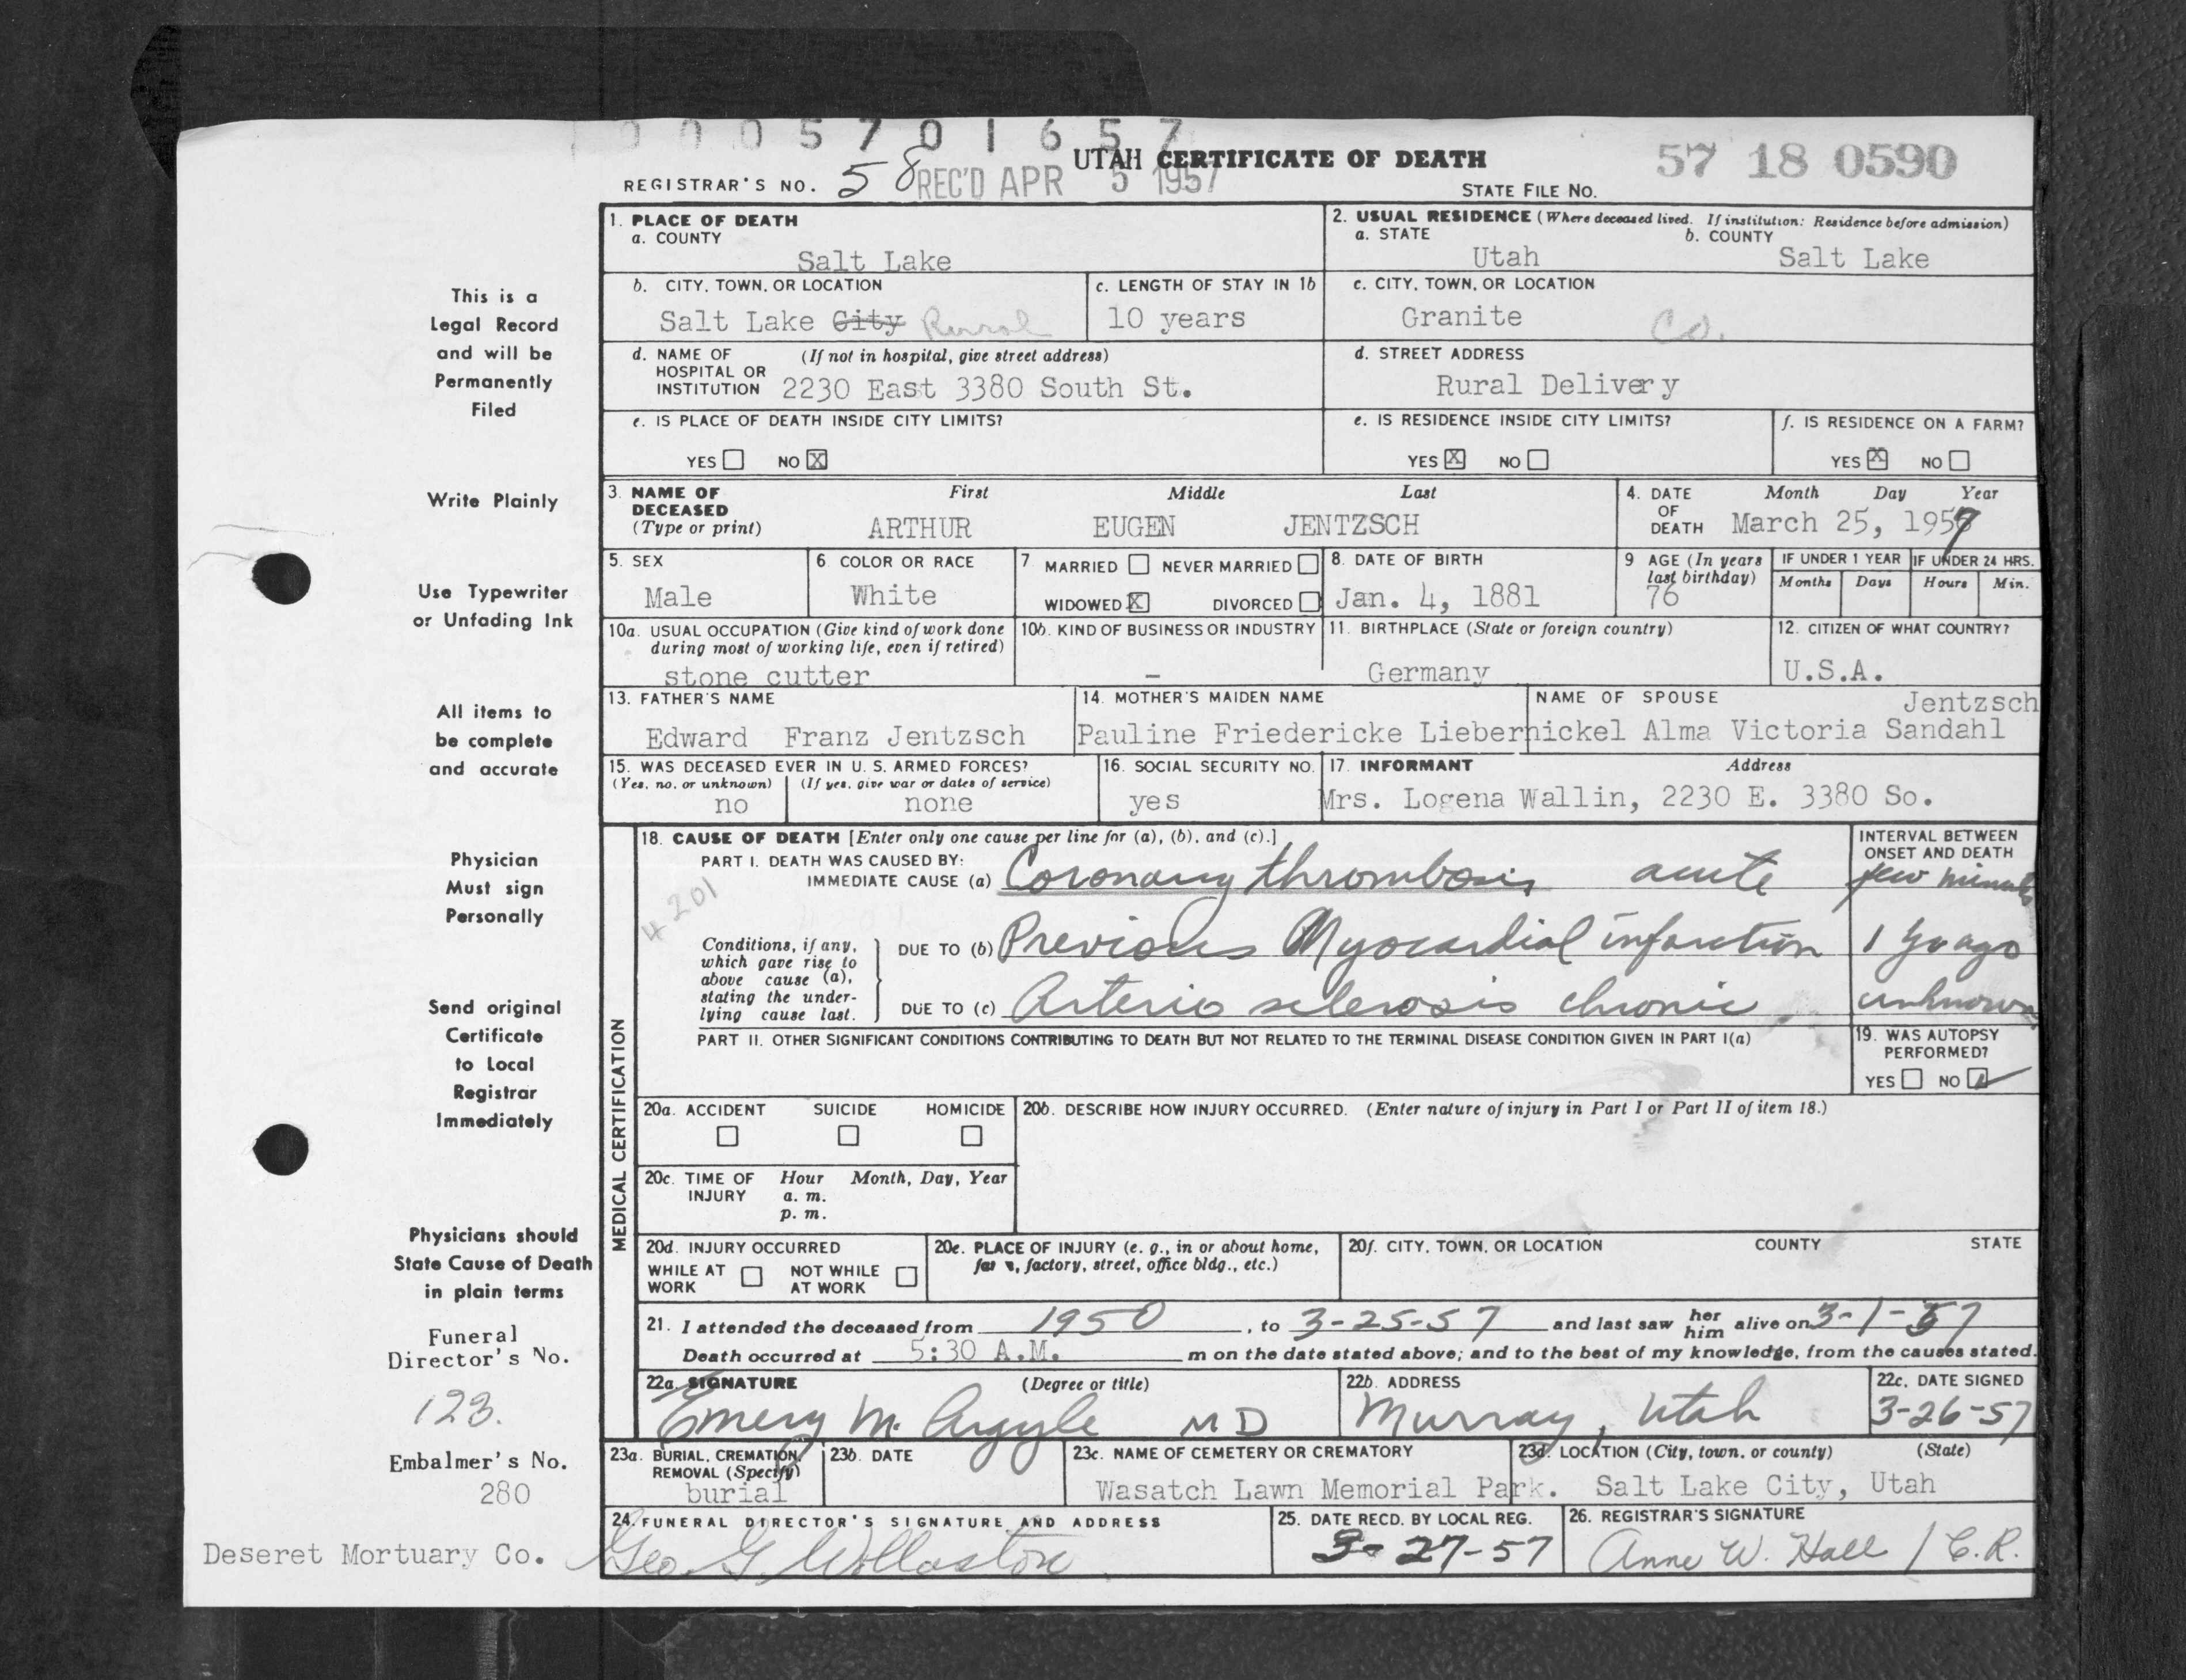 0 0 0 5 7 0 1 6 5 7
UTAH CERTIFICATE OF DEATH
57 18 0590
REGISTRAR'S NO. 58 REC'D APR 5 1957 STATE FILE NO.
1. PLACE OF DEATH
a. COUNTY
Salt Lake
2. USUAL RESIDENCE (Where deceased lived. If institution: Residence before admission)
a. STATE b. COUNTY
Utah Salt Lake
b. CITY, TOWN, OR LOCATION
Salt Lake City Rural
c. LENGTH OF STAY IN 1b
10 years
c. CITY, TOWN, OR LOCATION
Granite Co.
d. NAME OF (If not in hospital, give street address)
HOSPITAL OR
INSTITUTION 2230 East 3380 South St.
d. STREET ADDRESS
Rural Delivery
e. IS PLACE OF DEATH INSIDE CITY LIMITS?
YES NO X
e. IS RESIDENCE INSIDE CITY LIMITS?
YES X NO
f. IS RESIDENCE ON A FARM?
YES X NO
3. NAME OF First Middle Last
DECEASED
(Type or print) ARTHUR EUGEN JENTZSCH
4. DATE Month Day Year
OF
DEATH March 25, 1957
5. SEX
Male
6. COLOR OR RACE
White
7 MARRIED NEVER MARRIED
WIDOWED X DIVORCED
8. DATE OF BIRTH
Jan. 4, 1881
9 AGE (In years
last birthday)
76
IF UNDER 1 YEAR IF UNDER 24 HRS.
Months Days Hours Min.
10a. USUAL OCCUPATION (Give kind of work done
during most of working life, even if retired)
stone cutter
10b. KIND OF BUSINESS OR INDUSTRY
-
11. BIRTHPLACE (State or foreign country)
Germany
12. CITIZEN OF WHAT COUNTRY?
U.S.A.
13. FATHER'S NAME
Edward Franz Jentzsch
14. MOTHER'S MAIDEN NAME
Pauline Friedericke Liebernickel
NAME OF SPOUSE Jentzsch
Alma Victoria Sandahl
15. WAS DECEASED EVER IN U. S. ARMED FORCES?
(Yes, no, or unknown) (If yes, give war or dates of service)
no none
16. SOCIAL SECURITY NO.
yes
17. INFORMANT Address
Mrs. Logena Wallin, 2230 E. 3380 So.
MEDICAL CERTIFICATION
18. CAUSE OF DEATH [Enter only one cause per line for (a), (b), and (c).]
INTERVAL BETWEEN
ONSET AND DEATH
PART I. DEATH WAS CAUSED BY:
IMMEDIATE CAUSE (a) Coronary thrombosis acute few minutes
4201
Conditions, if any,
which gave rise to
above cause (a),
stating the under-
lying cause last.
DUE TO (b) Previous Myocardial infarction 1 yr ago
DUE TO (c) Arterio sclerosis chronic unknown
PART II. OTHER SIGNIFICANT CONDITIONS CONTRIBUTING TO DEATH BUT NOT RELATED TO THE TERMINAL DISEASE CONDITION GIVEN IN PART I(a)
19. WAS AUTOPSY
PERFORMED?
YES NO ✓
20a. ACCIDENT SUICIDE HOMICIDE
20b. DESCRIBE HOW INJURY OCCURRED. (Enter nature of injury in Part I or Part II of item 18.)
20c. TIME OF Hour Month, Day, Year
INJURY a. m.
p. m.
20d. INJURY OCCURRED
WHILE AT NOT WHILE
WORK AT WORK
20e. PLACE OF INJURY (e. g., in or about home,
farm, factory, street, office bldg., etc.)
20f. CITY, TOWN, OR LOCATION COUNTY STATE
21. I attended the deceased from 1950, to 3-25-57 and last saw her him alive on 3-1-57
Death occurred at 5:30 A.M. m on the date stated above; and to the best of my knowledge, from the causes stated.
22a. SIGNATURE (Degree or title)
Emery M. Argyle MD
22b. ADDRESS
Murray, Utah
22c. DATE SIGNED
3-26-57
23a. BURIAL, CREMATION,
REMOVAL (Specify)
burial
23b. DATE
23c. NAME OF CEMETERY OR CREMATORY
Wasatch Lawn Memorial Park.
23d. LOCATION (City, town, or county) (State)
Salt Lake City, Utah
24. FUNERAL DIRECTOR'S SIGNATURE AND ADDRESS
Geo. G. Wollaston
25. DATE RECD. BY LOCAL REG.
3-27-57
26. REGISTRAR'S SIGNATURE
Anne W. Hall / C.R.
This is a
Legal Record
and will be
Permanently
Filed
Write Plainly
Use Typewriter
or Unfading Ink
All items to
be complete
and accurate
Physician
Must sign
Personally
Send original
Certificate
to Local
Registrar
Immediately
Physicians should
State Cause of Death
in plain terms
Funeral
Director's No.
123.
Embalmer's No.
280
Deseret Mortuary Co.